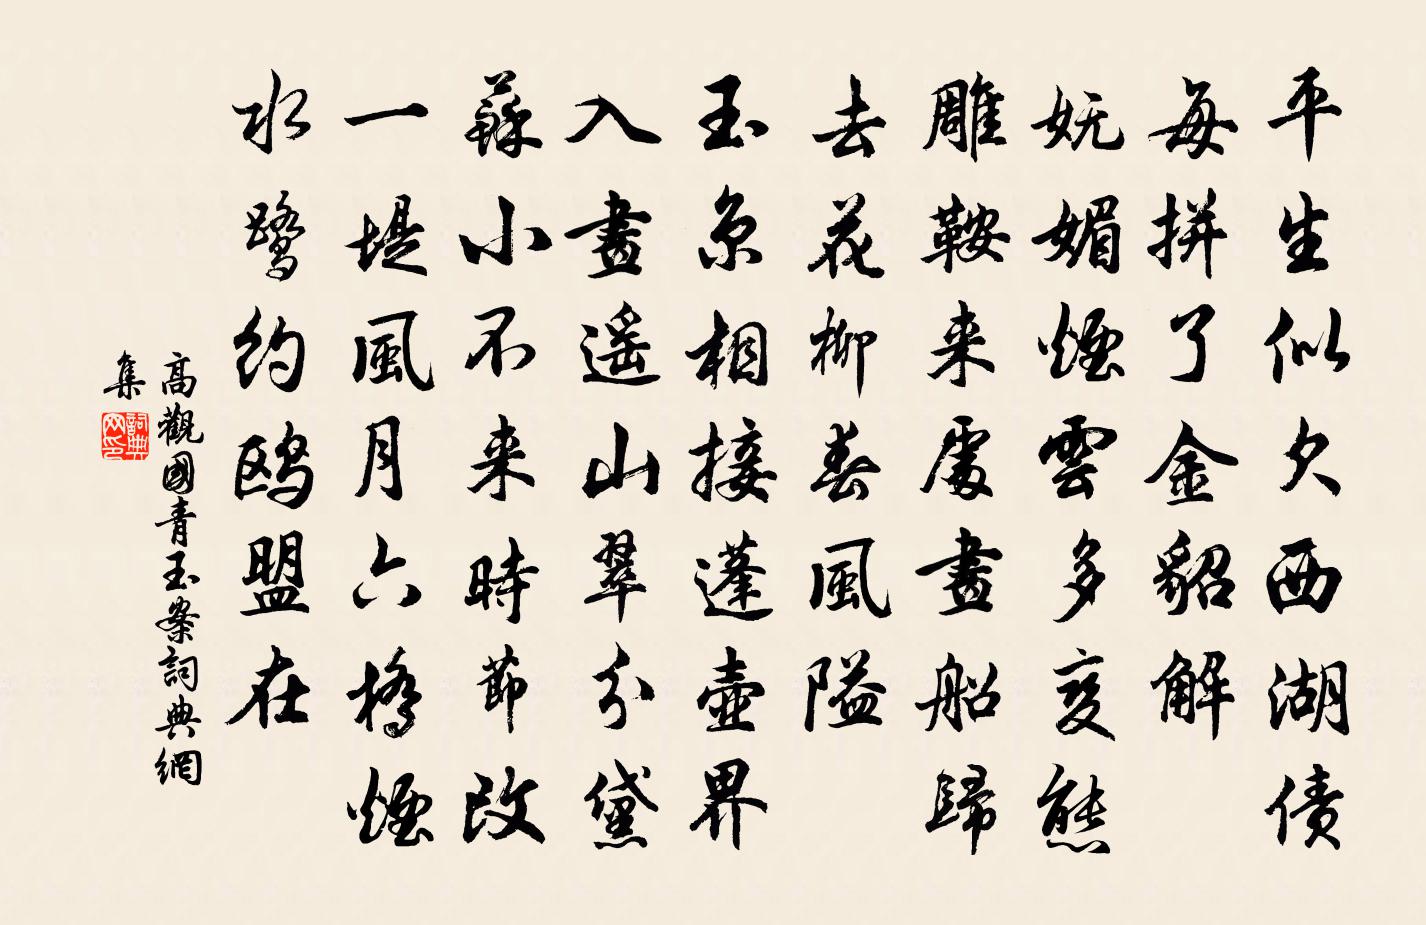 平生似欠西湖债
每拼了金貂解
妩媚煙雲多变態
雕鞍来處畫船歸
去花柳春風隘
玉京相接蓬壺界
入畫遥山翠分黛
蘇小不来時節改
一堤風月六橋煙
水鹭约鸥盟在
高觀國青玉案詞典網
集
詞典
网印